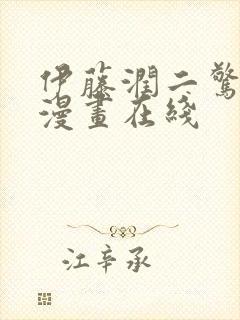 伊藤潤二驚
漫畫在綫
江辛承